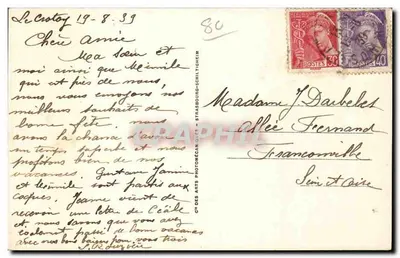 Le Crotoy 19-8-39
8c
Chère Amie
Ma Sœur et
moi ainsi que
qui est près de nous,
nous vous envoyons nos
meilleurs souhaits de
bonne fête nous
avons la chance d'avoir
un temps superbe et nous
profitons bien de nos
vacances. Gustave Janine
et sont partis aux
coques. Jeanne vient de
recevoir une lettre de Cécile
et nous savons que vous avez
de bonnes vacances
avec nos bons baisers pour vous trois
Madame J Darbelet
Allée Fernand
Franconville
Seine et Oise
POSTES
30
40